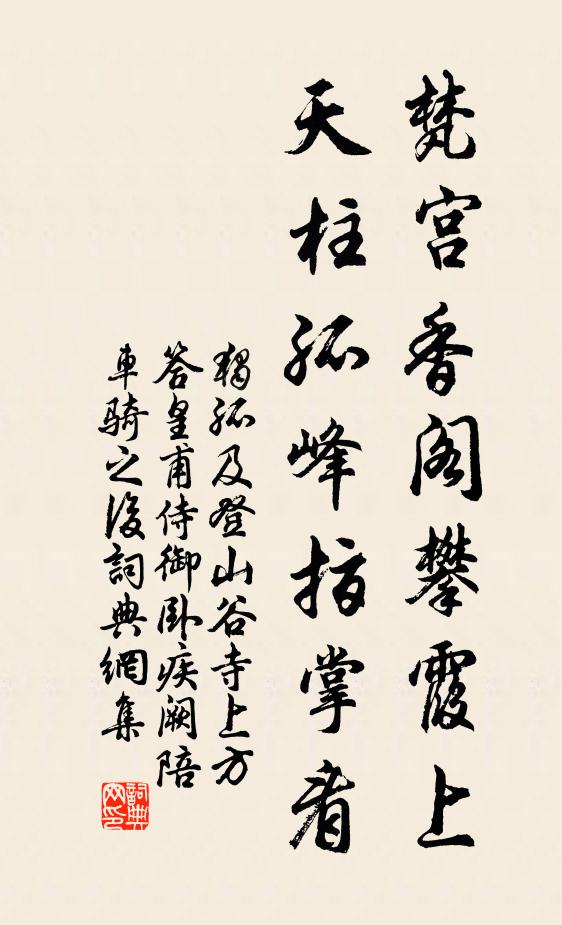 梵宫香阁攀霞上
天柱孤峰指掌看
獨孤及登山谷寺上方
答皇甫侍御卧疾阙陪
車騎之後詞典網集
詞典网印